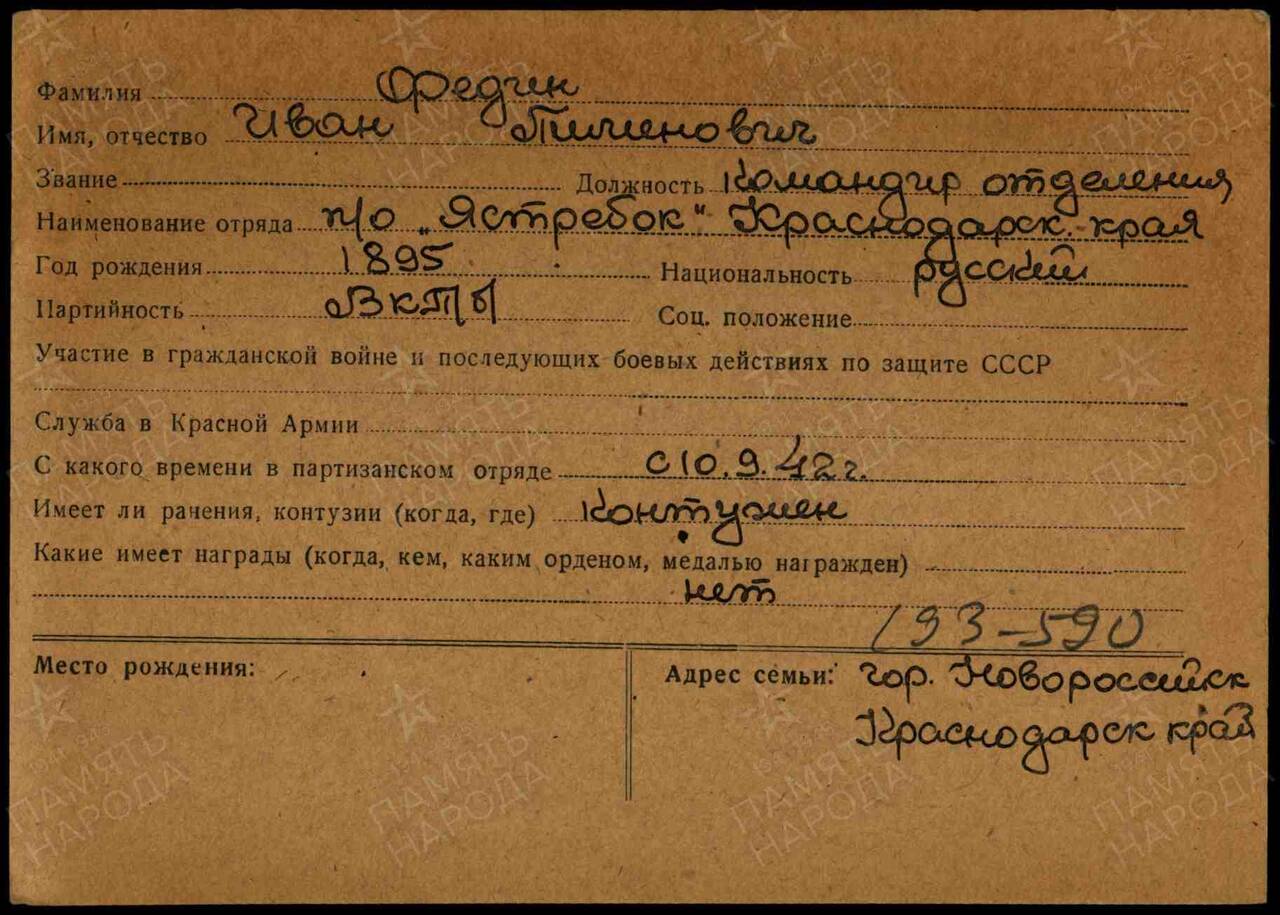 Фамилия Федчен
Имя, отчество Иван Пименович
Звание Должность Командир отделения
Наименование отряда п/о „Ястребок“ Краснодарск. края
Год рождения 1895 Национальность русский
Партийность ВКП/б/ Соц. положение
Участие в гражданской войне и последующих боевых действиях по защите СССР
Служба в Красной Армии
С какого времени в партизанском отряде с 10.9.42 г.
Имеет ли ранения, контузии (когда, где) Контужен
Какие имеет награды (когда, кем, каким орденом, медалью награжден)
нет
193-590
Место рождения: Адрес семьи: гор. Новороссийск
Краснодарск край
ПАМЯТЬ НАРОДА